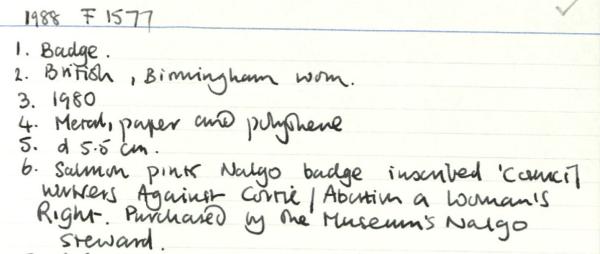 1988 F 1577
1. Badge.
2. British, Birmingham worn.
3. 1980
4. Metal, paper and polythene
5. d 5.5 cm.
6. Salmon pink Nalgo badge inscribed 'Council
workers Against Corrie / Abortion a Woman's
Right. Purchased by the Museum's Nalgo
steward.